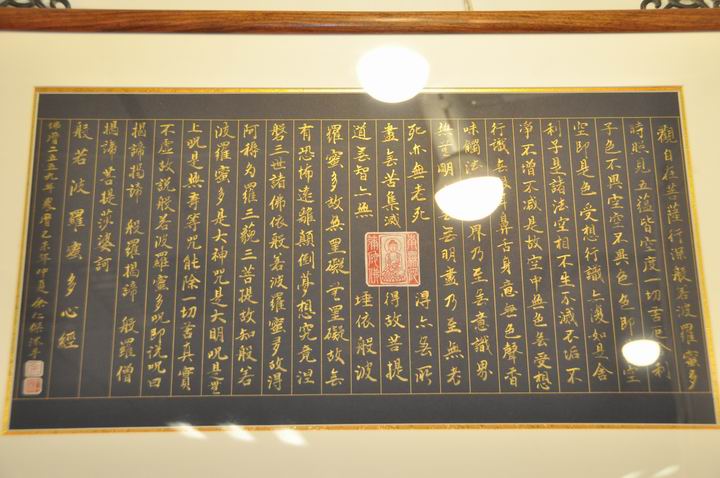 觀自在菩薩行深般若波羅蜜多
時照見五蘊皆空度一切苦厄利
子色不異空空不異色色即空
空即是色受想行識亦復如是舍
利子是諸法空相不生不滅不垢不
淨不增不減是故空中無色無受想
行識無鼻舌身意無色聲香
味觸法界乃至無意識界
無無明無無明盡乃至無老
死亦無老死 得亦無所
盡無苦集滅 得故菩提
道無智亦無 埵依般波
羅蜜多故無罣礙無罣礙故無
有恐怖遠離顛倒夢想究竟涅
槃三世諸佛依般若波羅蜜多故得
阿耨多羅三藐三菩提故知般若
波羅蜜多是大神咒是大明咒是無
上咒是無等等咒能除一切苦真實
不虛故說般若波羅蜜多咒即說咒曰
揭諦揭諦 般羅揭諦 般羅僧
揭諦 菩提莎婆訶
般若波羅蜜多心經
佛曆二五五九年歲曆乙未年仲夏余仁傑沐手